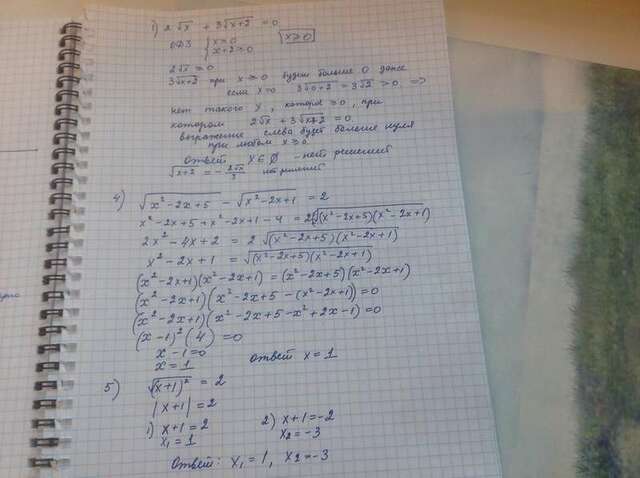 1) 2√x + 3√(x+2) = 0
ОДЗ { x ≥ 0
x+2 ≥ 0 [x ≥ 0]
2√x ≥ 0
3√(x+2) при x ≥ 0 будет больше 0 даже
если x=0 3√(0+2) = 3√2 > 0 =>
нет такого x, которое ≥ 0, при
котором 2√x + 3√(x+2) = 0
выражение слева будет больше нуля
при любом x ≥ 0
Ответ x ∈ ∅ - нет решений
√(x+2) = - 2√x/3 нет решений
4) √(x²-2x+5) - √(x²-2x+1) = 2
x²-2x+5+x²-2x+1-4 = 2√((x²-2x+5)(x²-2x+1))
2x²-4x+2 = 2√((x²-2x+5)(x²-2x+1))
x²-2x+1 = √((x²-2x+5)(x²-2x+1))
(x²-2x+1)(x²-2x+1) = (x²-2x+5)(x²-2x+1)
(x²-2x+1)(x²-2x+5-(x²-2x+1)) = 0
(x²-2x+1)(x²-2x+5-x²+2x-1) = 0
(x-1)²(4) = 0
x-1=0
x=1 Ответ x=1
5) √(x+1)² = 2
|x+1| = 2
1) x+1=2 2) x+1=-2
x₁=1 x₂=-3
Ответ: x₁=1, x₂=-3